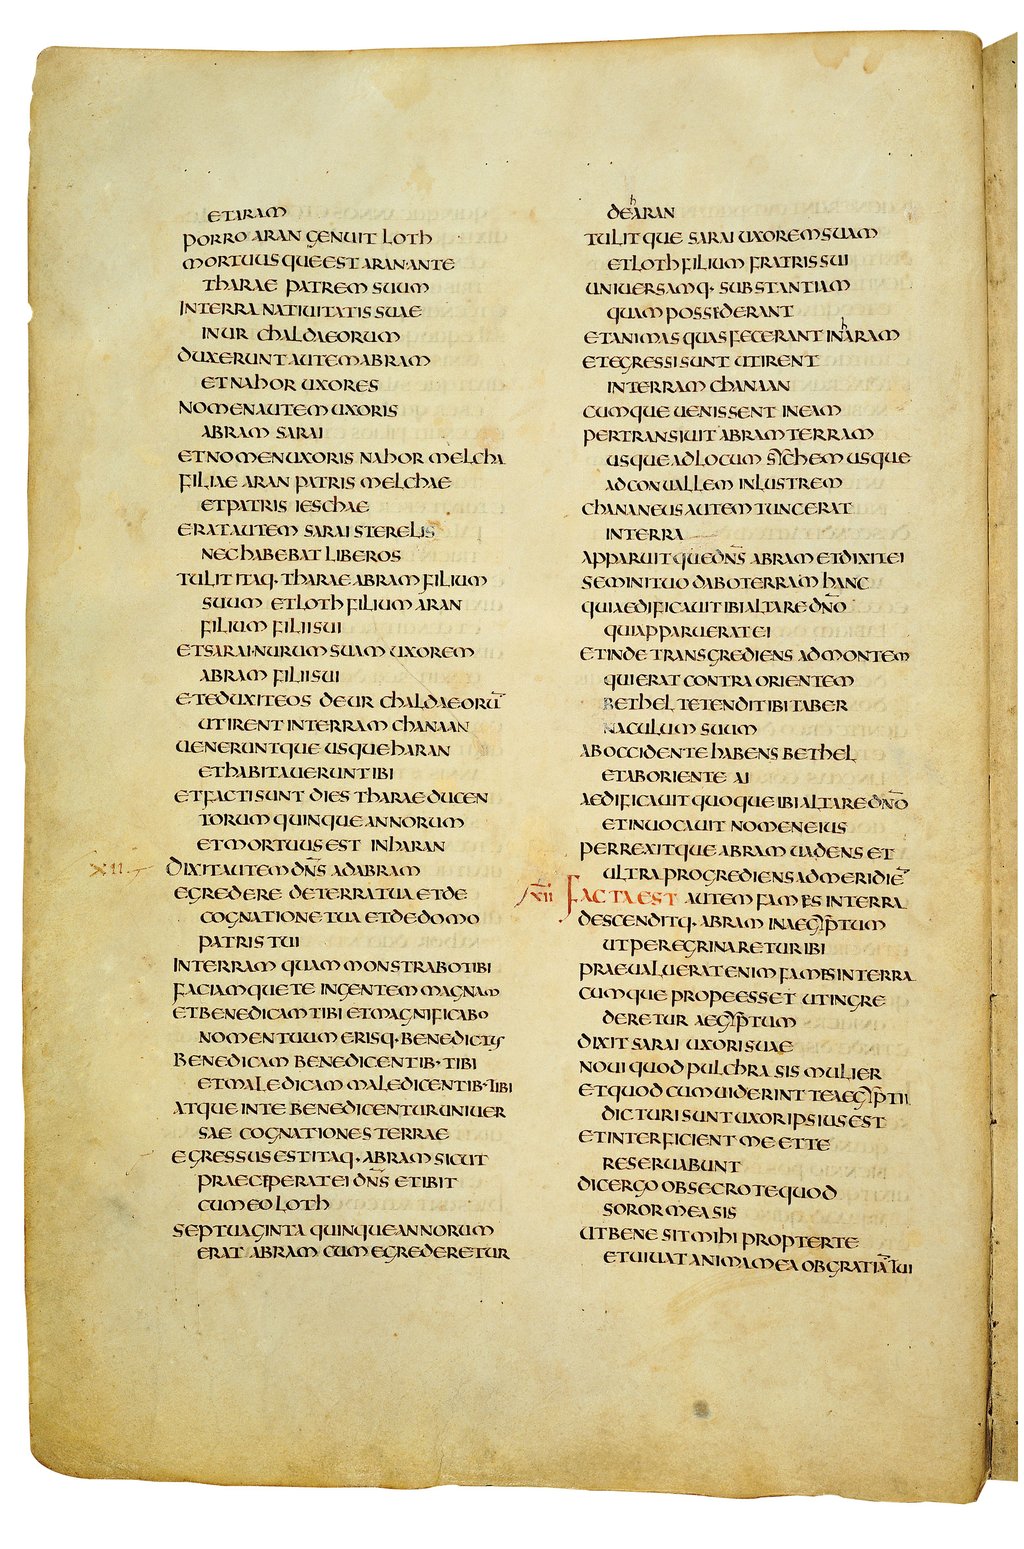 ET ARAM
PORRO ARAN GENUIT LOTH
MORTUUSQUE EST ARAN ANTE
THARAE PATREM SUUM
IN TERRA NATIUITATIS SUAE
IN UR CHALDAEORUM
DUXERUNT AUTEM ABRAM
ET NAHOR UXORES
NOMEN AUTEM UXORIS
ABRAM SARAI
ET NOMEN UXORIS NAHOR MELCHA
FILIAE ARAN PATRIS MELCHAE
ET PATRIS IESCHAE
ERAT AUTEM SARAI STERELIS
NEC HABEBAT LIBEROS
TULIT ITAQ· THARAE ABRAM FILIUM
SUUM ET LOTH FILIUM ARAN
FILIUM FILII SUI
ET SARAI·NURUM SUAM UXOREM
ABRAM FILII SUI
ET EDUXIT EOS DE UR CHALDAEORU̅
UT IRENT IN TERRAM CHANAAN
UENERUNTQUE USQUE HARAN
ET HABITAUERUNT IBI
ET FACTI SUNT DIES THARAE DUCEN
TORUM QUINQUE ANNORUM
ET MORTUUS EST IN HARAN
XII DIXIT AUTEM DN̅S AD ABRAM
EGREDERE DE TERRA TUA ET DE
COGNATIONE TUA ET DE DOMO
PATRIS TUI
IN TERRAM QUAM MONSTRABO TIBI
FACIAMQUE TE IN GENTEM MAGNAM
ET BENEDICAM TIBI ET MAGNIFICABO
NOMEN TUUM ERISQ· BENEDICTUS
BENEDICAM BENEDICENTIB· TIBI
ET MALEDICAM MALEDICENTIB·TIBI
ATQUE IN TE BENEDICENTUR UNIUER
SAE COGNATIONES TERRAE
EGRESSUS EST ITAQ· ABRAM SICUT
PRAECEPERAT EI DN̅S ET IBIT
CUM EO LOTH
SEPTUAGINTA QUINQUE ANNORUM
ERAT ABRAM CUM EGREDERETUR
DE HARAN
TULITQUE SARAI UXOREM SUAM
ET LOTH FILIUM FRATRIS SUI
UNIUERSAMQ· SUBSTANTIAM
QUAM POSSEDERANT
ET ANIMAS QUAS FECERANT IN HARAM
ET EGRESSI SUNT UT IRENT
IN TERRAM CHANAAN
CUMQUE UENISSENT IN EAM
PERTRANSIUIT ABRAM TERRAM
USQUE AD LOCUM SYCHEM USQUE
AD CONUALLEM INLUSTREM
CHANANEUS AUTEM TUNC ERAT
IN TERRA
APPARUITQUE DN̅S ABRAM ET DIXIT EI
SEMINI TUO DABO TERRAM HANC
QUI AEDIFICAUIT IBI ALTARE DN̅O
QUI APPARUERAT EI
ET INDE TRANSGREDIENS AD MONTEM
QUI ERAT CONTRA ORIENTEM
BETHEL TETENDIT IBI TABER
NACULUM SUUM
AB OCCIDENTE HABENS BETHEL
ET AB ORIENTE AI
AEDIFICAUIT QUOQUE IBI ALTARE DN̅O
ET INUOCAUIT NOMEN EIUS
PERREXITQUE ABRAM UADENS ET
ULTRA PROGREDIENS AD MERIDIE̅
XII FACTA EST AUTEM FAMES IN TERRA
DESCENDITQ· ABRAM IN AEGYPTUM
UT PEREGRINARETUR IBI
PRAEUALUERAT ENIM FAMES IN TERRA
CUMQUE PROPE ESSET UT INGRE
DERETUR AEGYPTUM
DIXIT SARAI UXORI SUAE
NOUI QUOD PULCHRA SIS MULIER
ET QUOD CUM UIDERINT TE AEGYPTII
DICTURI SUNT UXOR IPSIUS EST
ET INTERFICIENT ME ET TE
RESERUABUNT
DIC ERGO OBSECRO TE QUOD
SOROR MEA SIS
UT BENE SIT MIHI PROPTER TE
ET UIUAT ANIMA MEA OB GRATIA̅ TUI